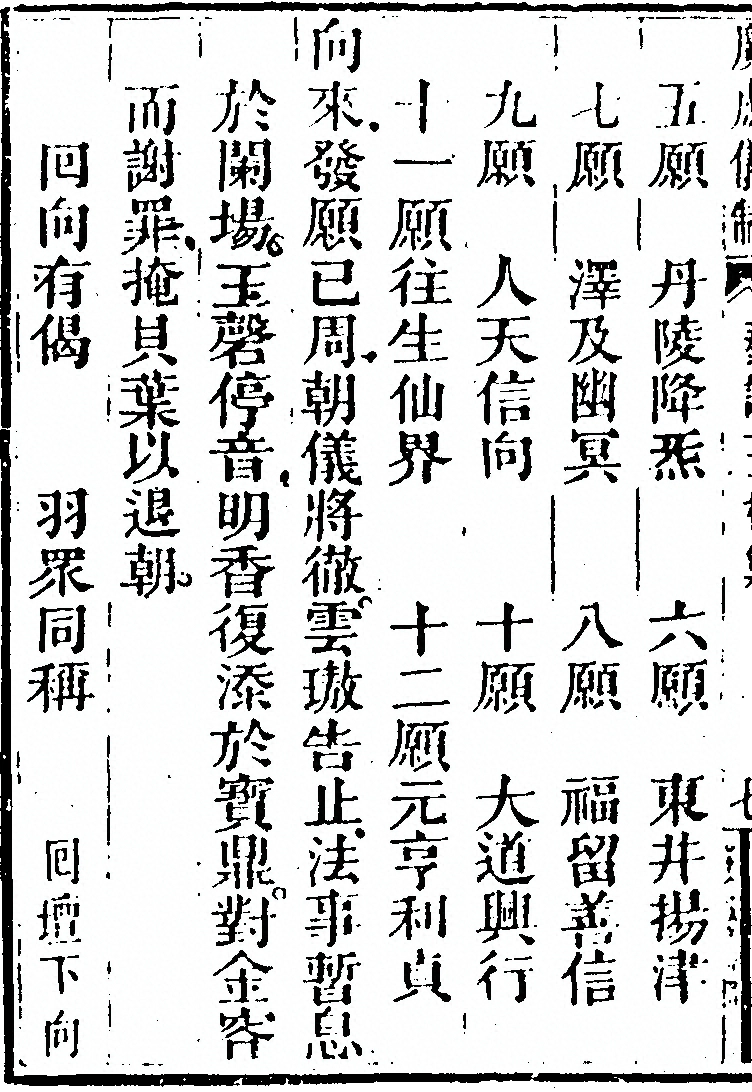 五願　丹陵降炁　六願　東井揚津
七願　澤及幽冥　八願　福留善信
九願　人天信向　十願　大道興行
十一願往生仙界　十二願元亨利貞
向來發願已周朝儀將徹。雲璈告止法事暫息
於闌場。玉磬停音明香復添於寶鼎。對金容
而謝罪掩貝葉以退朝。
回向有偈　羽眾同稱　回壇下向